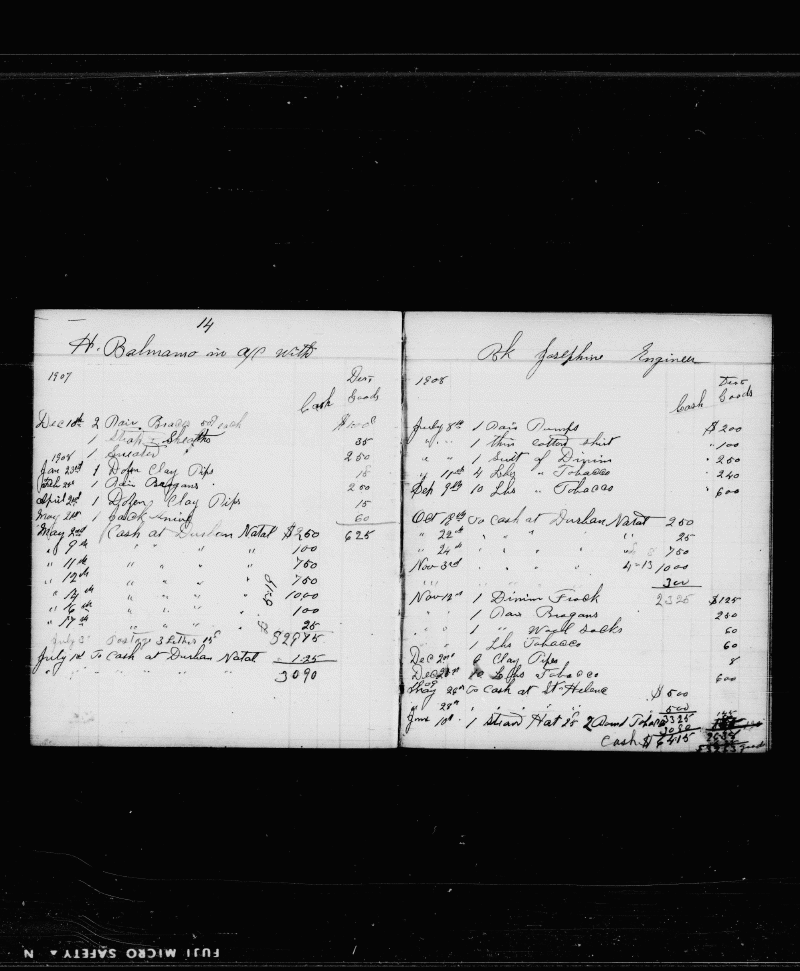 14
H. Balmamo in a/c with
1907
Ditto
Cash Goods
Dec 18th 2 Pair Braces 50 each
1 Strap & Sheaths 35
1908 1 Sweater 250
Jan 23rd 1 Dozen Clay Pips 18
Feb 1 Pair Braggans 250
April 2nd 1 Dozen Clay Pips 15
May 21st 1 Knife 60
May 2nd Cash at Durban Natal $250 625
" 9th " " " " 100
" 11th " " " " 750
" 12th " " " " 750
" 14th " " " " 1000
" 16th " " " " 100
" 17th " " " " 25
July 3 Postage 3 Letters 15c
July 1st To Cash at Durban Natal 1.25
" " " " " 3090
Bk Josephine Engineer
1908
Cash Goods
July 8th 1 Pair Pumps $200
" " 1 thin cotton shirt " 100
" " 1 Suit of Dinim " 250
" 11th 4 Lbs " Tobacco " 240
Sep 9th 10 Lbs " Tobacco " 600
Oct 18th To Cash at Durban Natal 250
" 22nd " " " " 25
" 24th " " " " 750
Nov 3rd " " " " 4-13 1000
300
Nov 12th 1 Dinim Frock 2325 $125
" " 1 Pair Brogans 250
" " 1 " Wool Socks 60
" " 1 Lbs Tobacco 60
Dec 2nd 6 Clay Pipes 8
Dec 10 Lbs Tobacco 600
1909
May 26th To Cash at St Helena $500
" 28th " " " " 500
June 10th 1 Straw Hat 25 2 Pound Tobacco 3325
3090
Cash $6415
FUJI MICRO SAFETY ▲ N